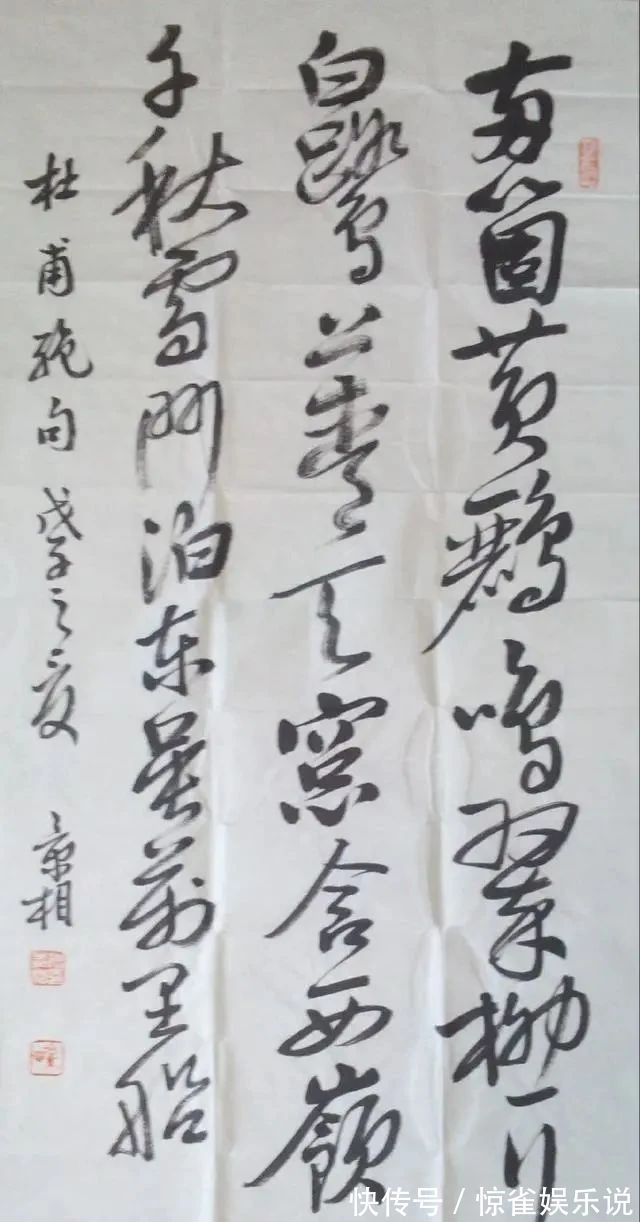 两箇黄鹂鸣翠柳一行
白鹭上青天窗含西岭
千秋雪门泊东吴万里船
杜甫绝句 戊子之夏 京相
快传号/惊雀娱乐说